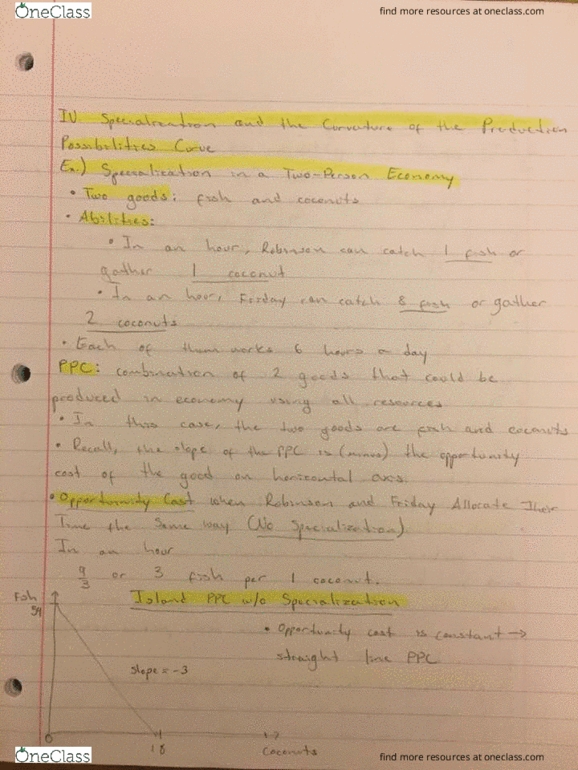 OneClass
find more resources at oneclass.com
IV. Specialization and the Curvature of the Production
Possibilities Curve
Ex.) Specialization in a Two-Person Economy
• Two goods: fish and coconuts
• Abilities:
• In an hour, Robinson can catch 1 fish or
gather 1 coconut
• In an hour, Friday can catch 8 fish or gather
2 coconuts
• Each of them works 6 hours a day
PPC: combination of 2 goods that could be
produced in economy using all resources
• In this case, the two goods are fish and coconuts
• Recall, the slope of the PPC is (minus) the opportunity
cost of the good on horizontal axis.
• Opportunity Cost when Robinson and Friday Allocate Their
Time the Same way (No Specialization)
In an hour
9/3 or 3 fish per 1 coconut.
Island PPC w/o Specialization
Fish
54
• Opportunity cost is constant →
straight line PPC
slope = -3
0
18
Coconuts
OneClass
find more resources at oneclass.com